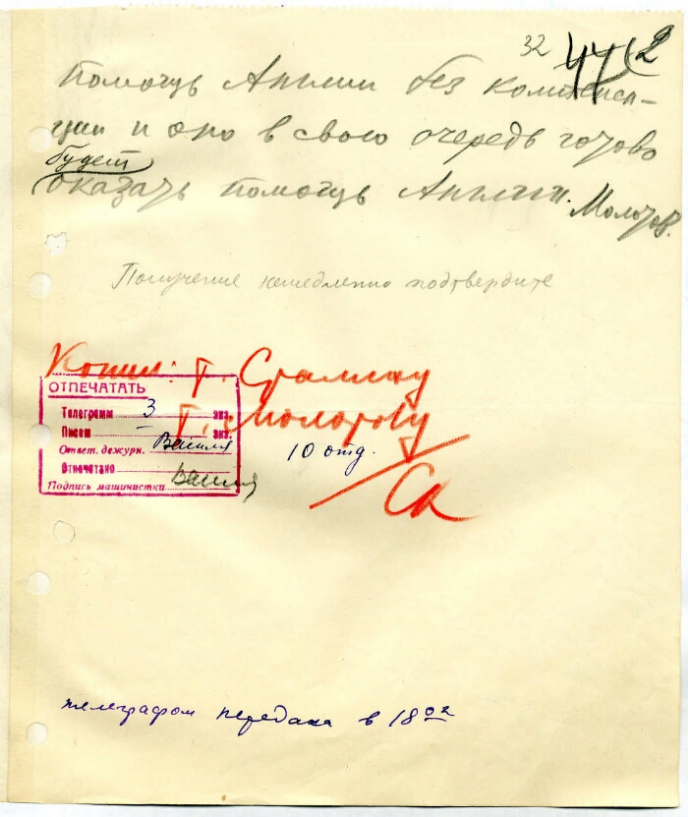 32 44 2
помощь Англии без компенса-
ции и оно в свою очередь готово
будет
оказать помощь Англии. Молотов.
Получение немедленно подтвердите
Копии: т. Сталину
т. Молотову
ОТПЕЧАТАТЬ
Телеграмм 3 экз.
Писем – экз.
Ответ. дежурн.
10 отд.
Отпечатано
Подпись машинистки
телеграфом передана в 18 02